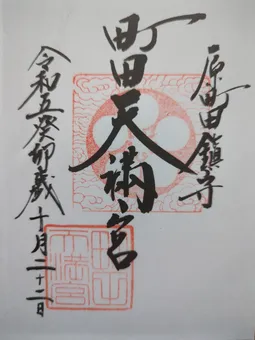 原町田鎮守
町田天満宮
令和五癸卯歳十月二十二日
町田天満宮